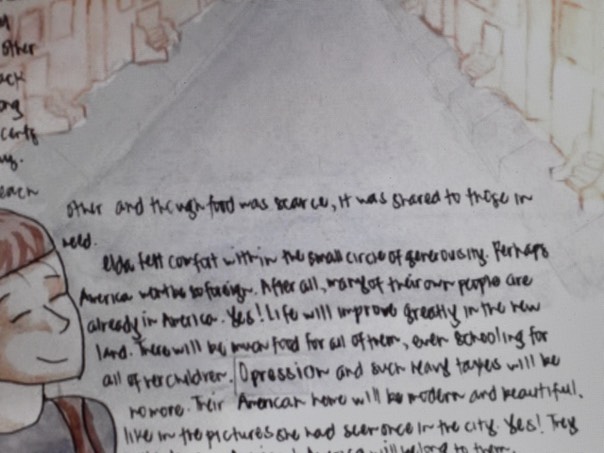 other
ack
ong
certs
each
other and though food was scarce, it was shared to those in
need.
Elda felt comfort within the small circle of generousity. Perhaps
America wont be so foreign. After all, many of their own people are
already in America. Yes! Life will improve greatly in the new
land. There will be much food for all of them, even schooling for
all of her children. Opression and such heavy taxes will be
no more. Their American home will be modern and beautiful,
like in the pictures she had seen once in the city. Yes! They
America will belong to them.